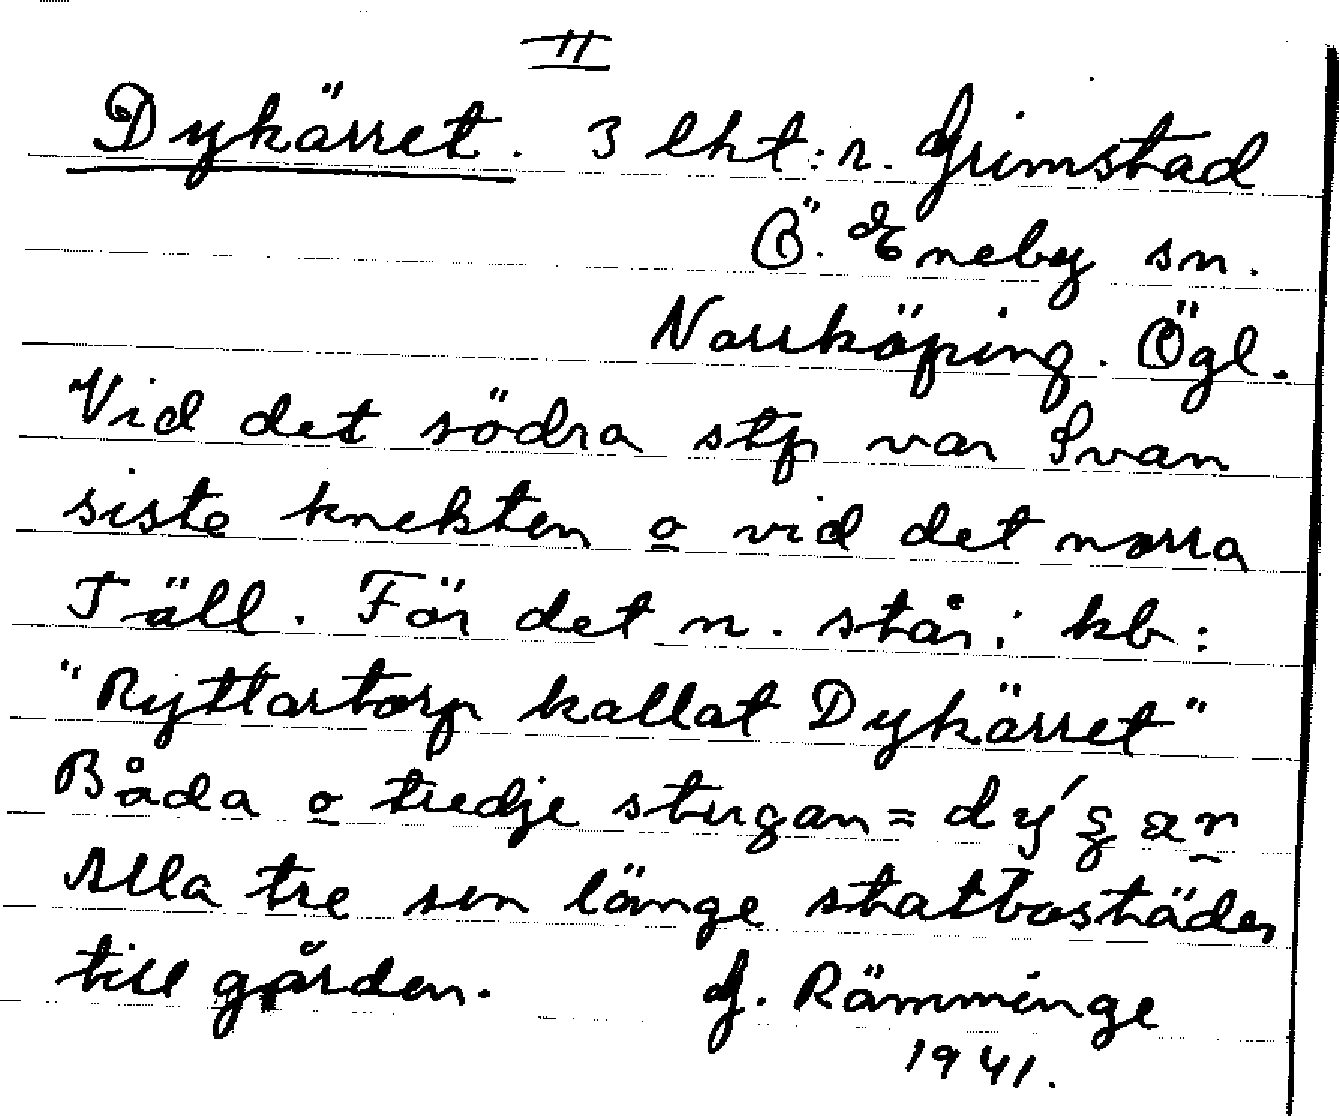 II
Dykärret. 3 lht:r. Grimstad
Ö. Eneby sn.
Norrköping. Ögl.
Vid det södra stp var Svan
siste knekten o vid det norra
Täll. För det n. står i kb:
"Ryttartorp kallat Dykärret"
Båda o tredje stugan =
Alla tre sen länge statbostäder
till gården. G. Rämminge
1941.